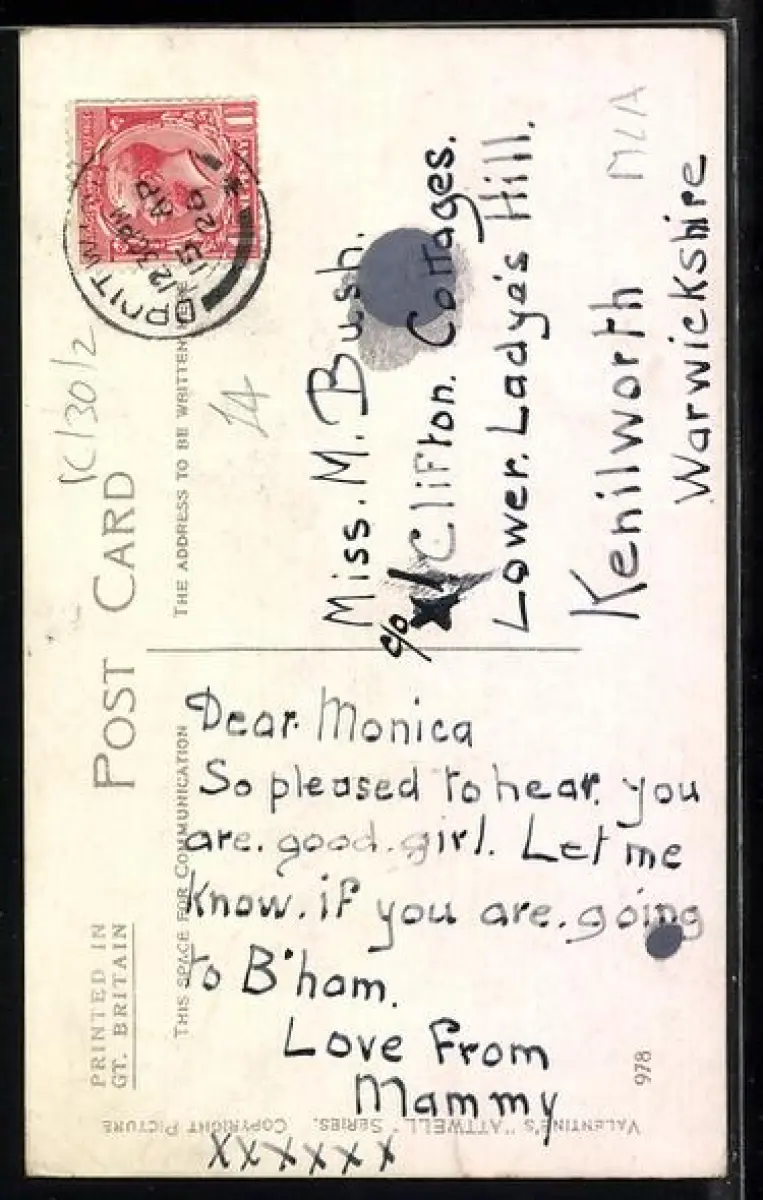 POST CARD
PRINTED IN
GT. BRITAIN
THIS SPACE FOR COMMUNICATION
THE ADDRESS TO BE WRITTEN
12 30 PM
15 AP
26
14
Miss. M. Bush.
c/o 1 Clifton. Cottages.
Lower. Ladye's Hill.
Kenilworth
Warwickshire
Dear. Monica
So pleased to hear. you
are. good. girl. Let me
know. if you are. going
to B'ham.
Love From
Mammy
xxxxxx
VALENTINE'S "ATTWELL" SERIES. COPYRIGHT PICTURE
978